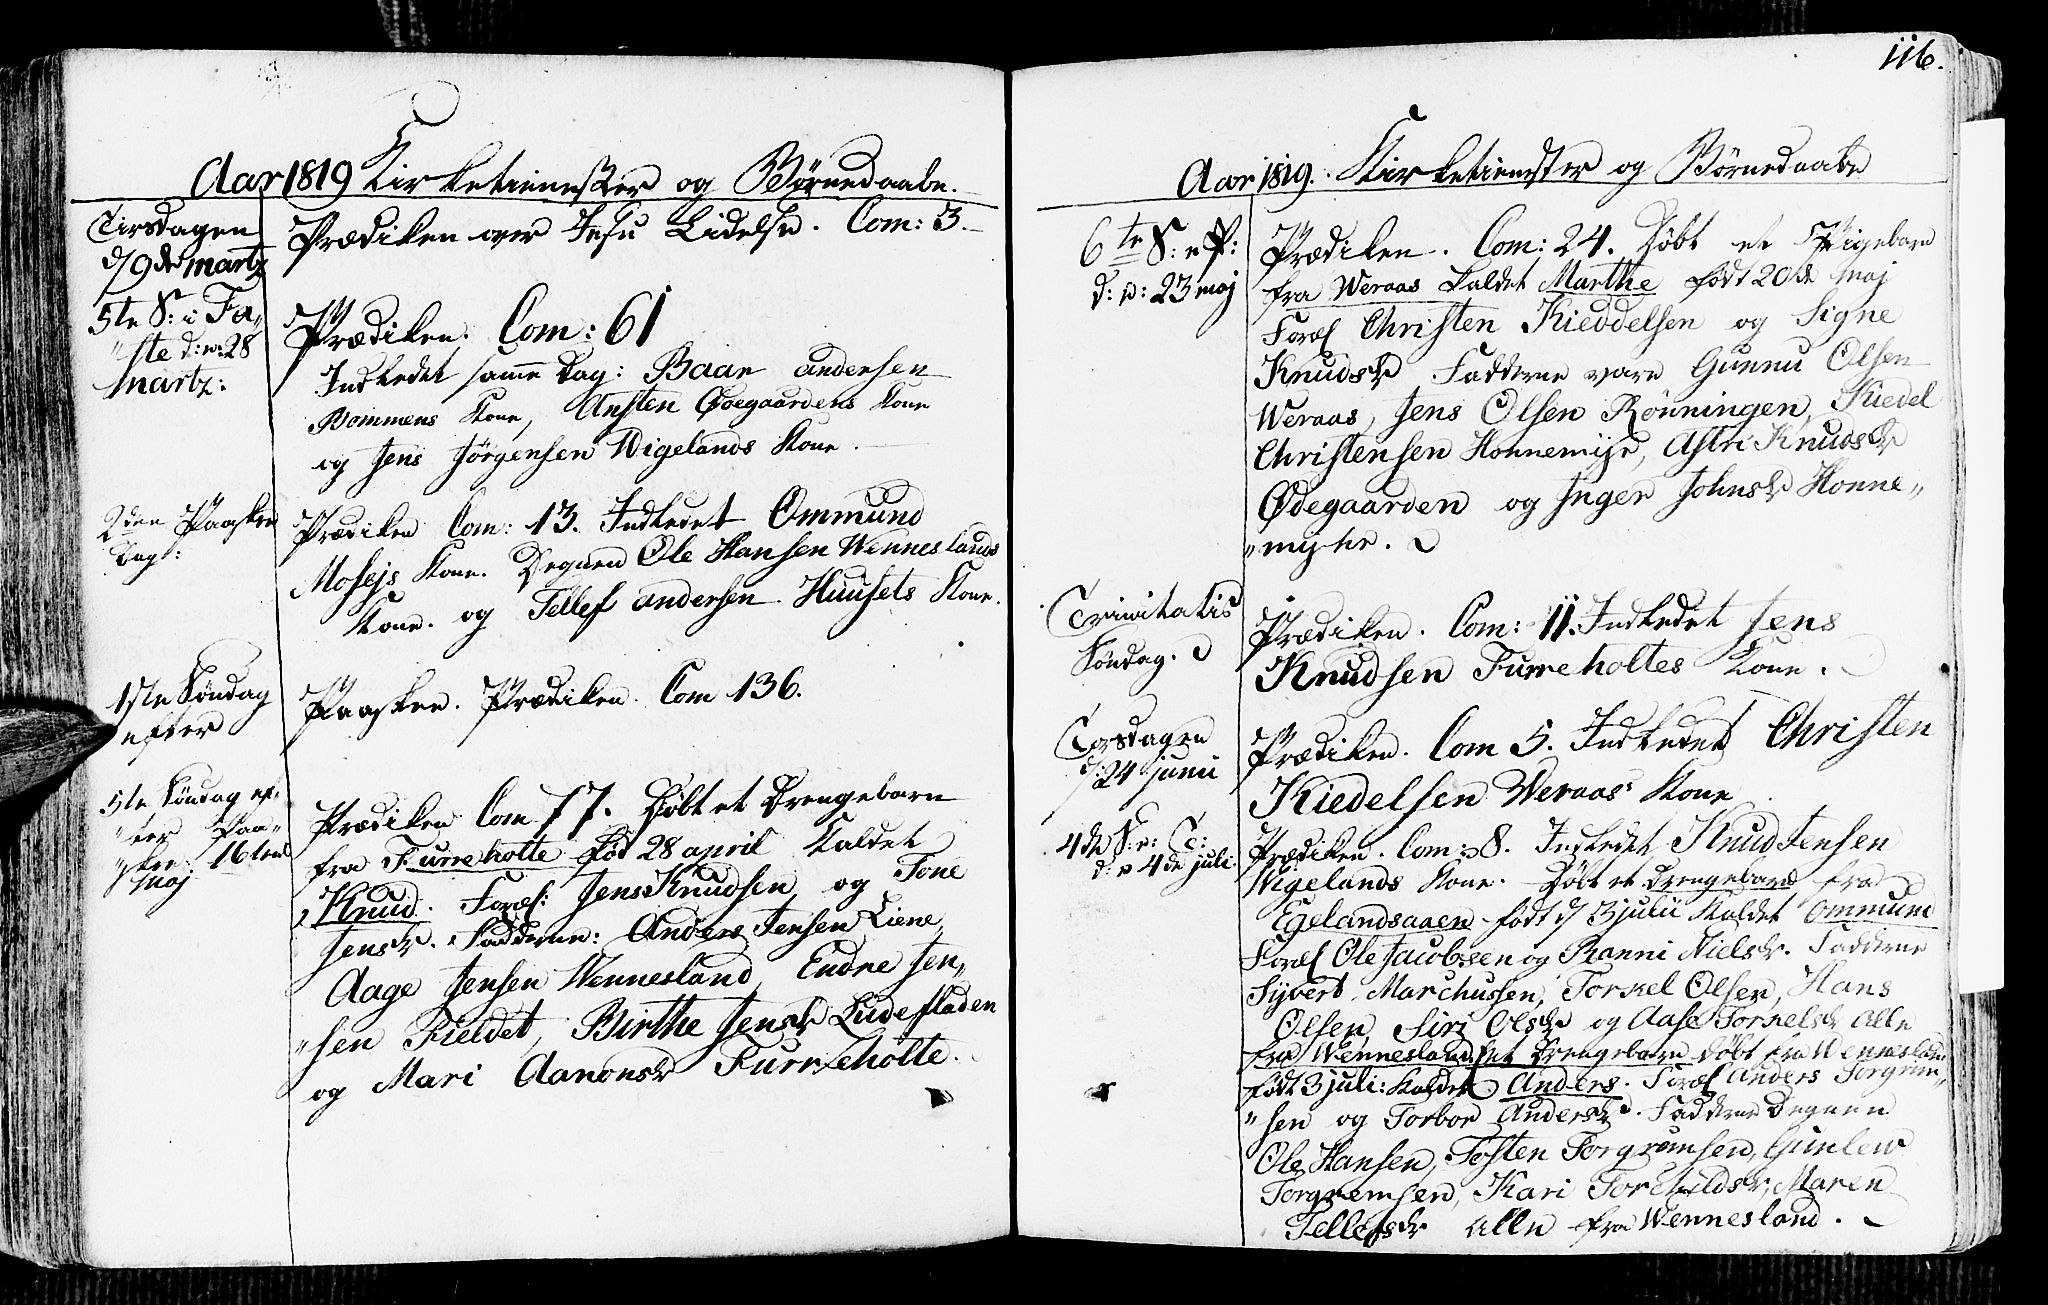 Aar 1819 Kirketienester og Børnedaabe.
Tirsdagen
d/9de Martz
Prædiken over Jesu Lidelse. Com: 3.
5te S: i Fa„
„ste d: e: 28
Martz:
Prædiken. Com: 61
Indledet samme Dag: Baar Andersen
Bommens Kone, Austen Ødegaardens Kone
og Jens Jørgensen Wigelands Kone.
2den Paaske
Dag:
Prædiken Com: 13. Indledet Ommund
Mosejs Kone. Degnen Ole Hansen Wenneslands
Kone. og Tellef Andersen Huusets Kone.
1ste Søndag
efter
Paasken. Prædiken. Com 136.
5te Søndag ef„
„ter Paa„
„sken: 16tend
Maj
Prædiken Com 77. Døbt et Drengebarn
fra Furreholte fød 28 april Kaldet
Knud. Foræl: Jens Knudsen og Tone
Jensdr. Fadderne: Anders Jensen Liene,
Aage Jensen Wennesland, Endre Jen„
„sen Fieldet, Birthe Jensdr Ludefladen
og Mari Aanonsdr Furreholte.
116.
Aar 1819. Kirketienester og Børnedaabe
6te S: e P:
d: e: 23 Maj
Prædiken. Com: 24. Døbt et Pigebarn
fra Weraas Kaldet Marthe født 20de Maj
Foræl Christen Kieddelsen og Signe
Knudsdr Fadderne vare Gunnu Olsen
Weraas, Jens Olsen Rønningen, Kiedel
Christensen Honnemyr, Astri Knudsdr
Ødegaarden og Inger Johnsdr Honne„
„myhr.
Trinitatis
Søndag.
Prædiken. Com: 11. Indledet Jens
Knudsen Furreholtes Kone.
Torsdagen
d/24 Junii
Prædiken. Com 5. Indledet Christen
Kiedelsen Weraas' Kone
4de S: e: T:
d: e 4de Juli
Prædiken. Com: 8. Indledet Knud Jensen
Wigelands Kone. Døbt et Drengebarn fra
Egelandsaaen født d/ 3 Julii Kaldet Ommund
Foræl Ole Jacobsen og Ranni Nielsdr. Fadderne
Syvert Marchussen, Torkel Olsen, Hans
Olsen, Siri Olsdr og Aase Torkelsdr Alle
fra Wennesland. Et Drengebarn døbt fra Wennesland
født 3 Juli: Kaldet Anders. Foræl Anders Torgrim„
„sen og Torbor Andersdr. Fadderne Degnen
Ole Hansen, Tosten Torgrimsen, Gunlew
Torgremsen, Kari Torchildsdr, Maren
Tellefsdr alle fra Wennesland.